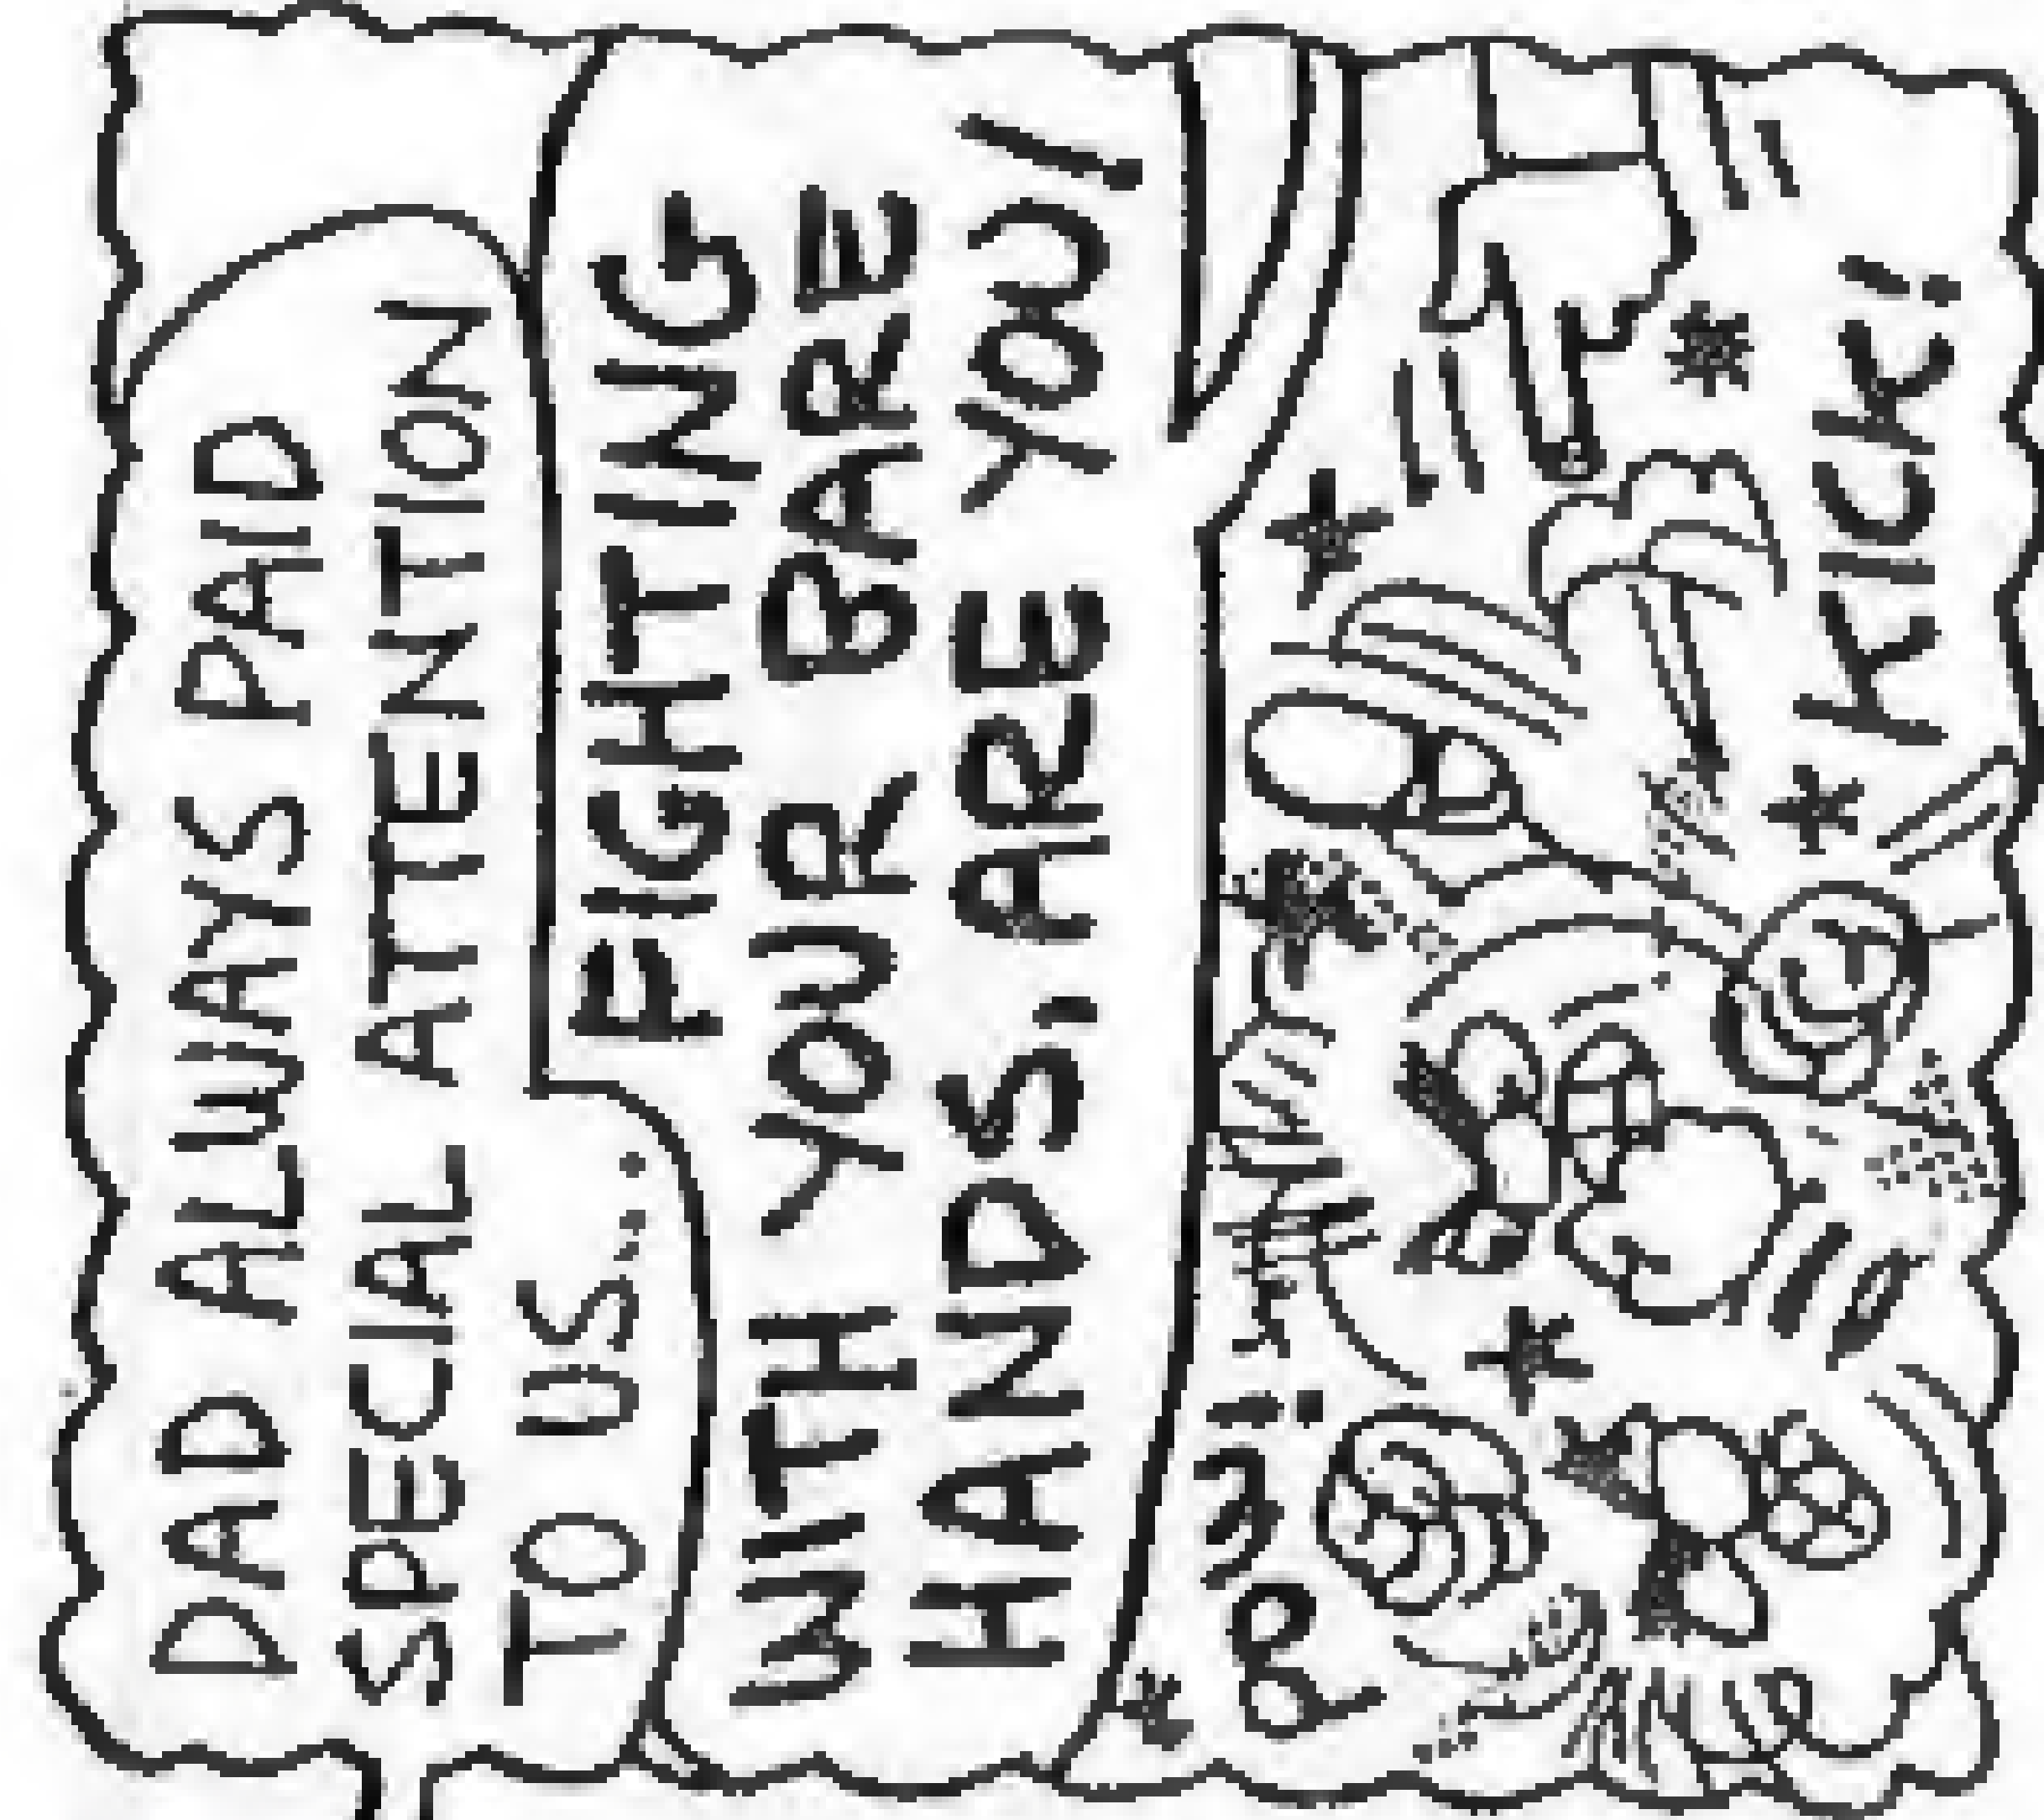 DAD ALWAYS PAID
SPECIAL ATTENTION
TO US....
FIGHTING
WITH YOUR BARE
HANDS, ARE YOU!
POW!
KICK!